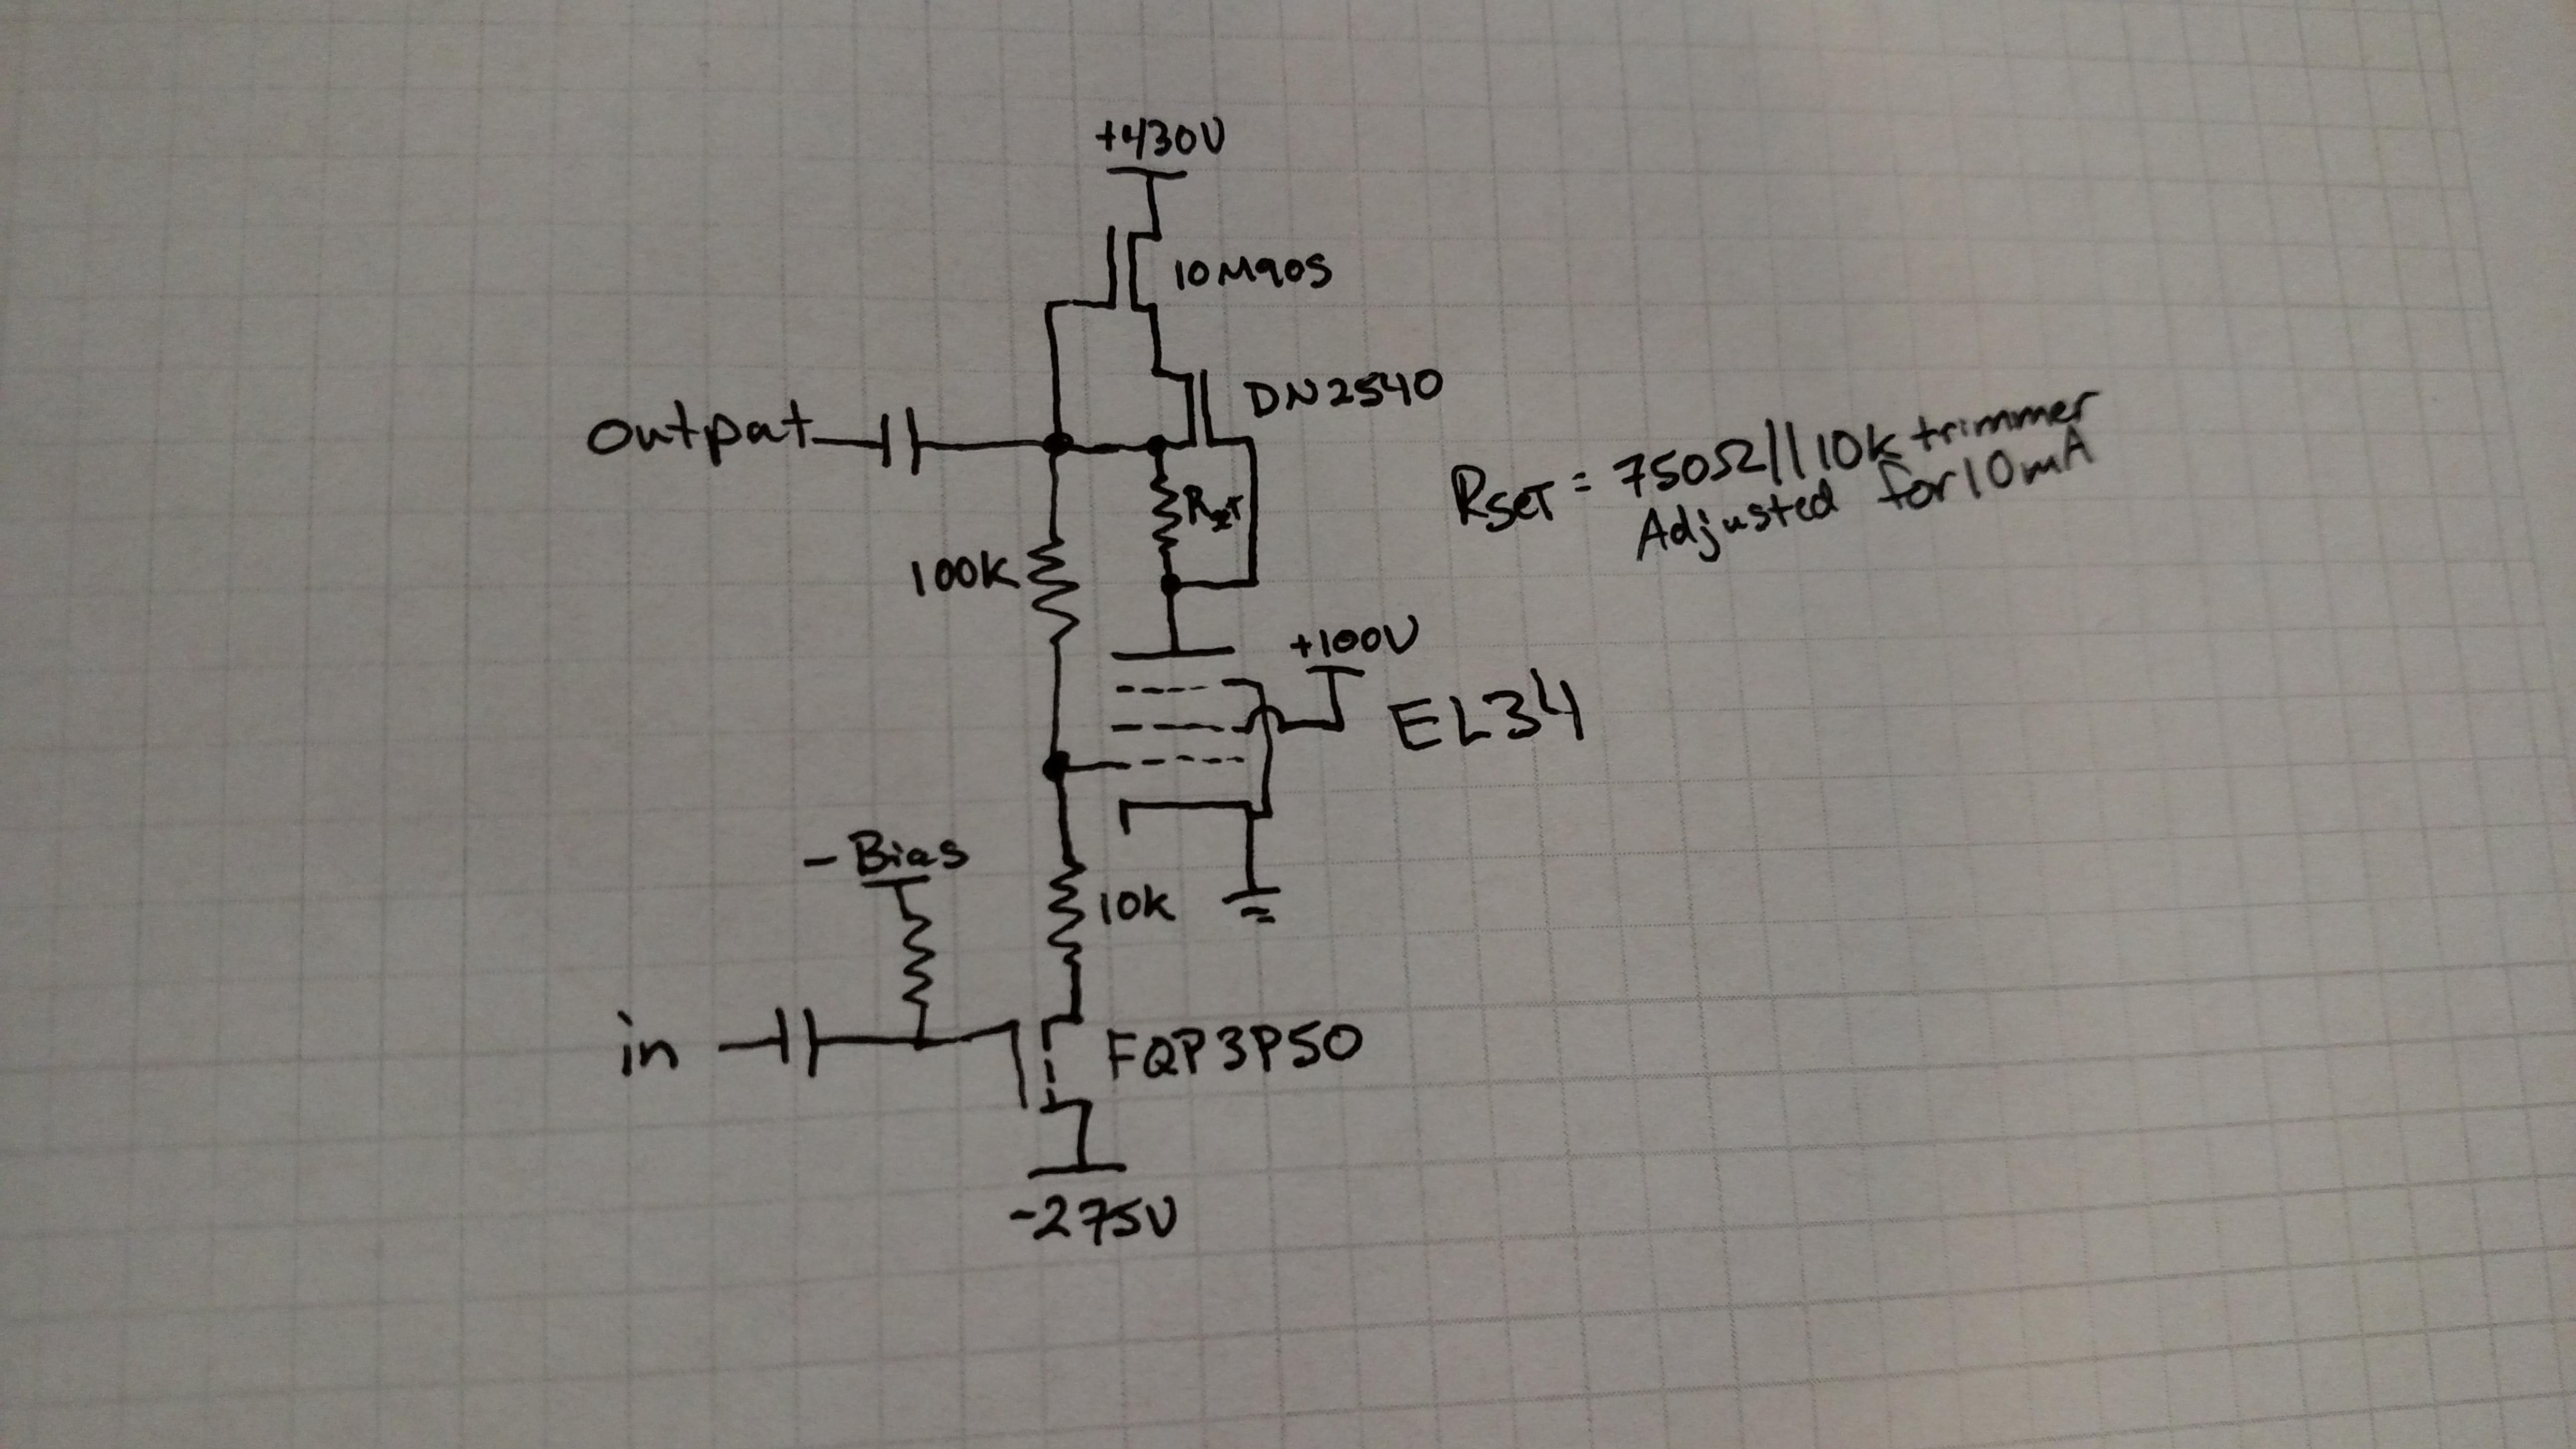 +430V
10M90S
DN2540
Output
RSET = 750Ω||10k trimmer
Adjusted for 10mA
RSET
100K
+100V
EL34
-Bias
10k
in
FQP3P50
-275V